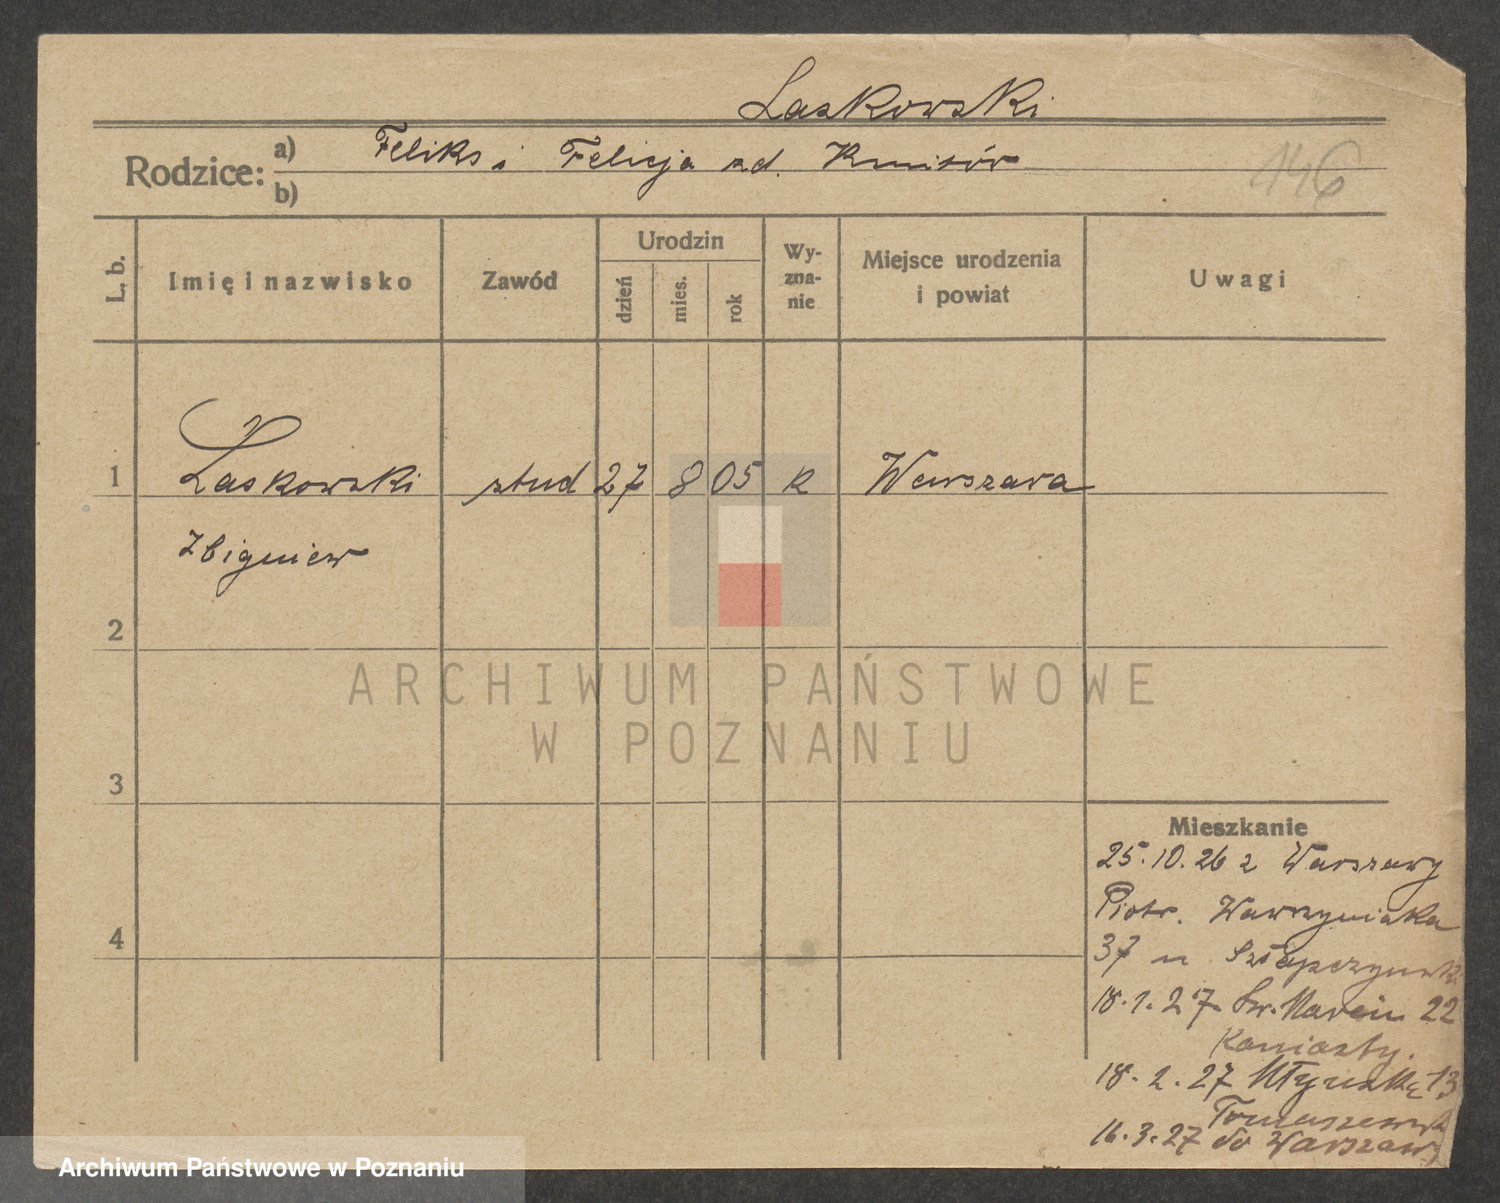 Laskowski
Rodzice: a) Feliks i Felicja zd. Kmitów
b)
146
L. b.
Imię i nazwisko
Zawód
Urodzin
dzień
mies.
rok
Wy-
zna-
nie
Miejsce urodzenia
i powiat
Uwagi
1 Laskowski stud 27 8 05 k Warszawa
Zbigniew
2
3
4
ARCHIWUM PAŃSTWOWE
W POZNANIU
Mieszkanie
25.10.26 z Warszawy
Piotr. Wawrzyniaka
37 u
18.1.27 Św. Marcin 22
18.2.27 13
16.3.27 do Warszawy
Archiwum Państwowe w Poznaniu